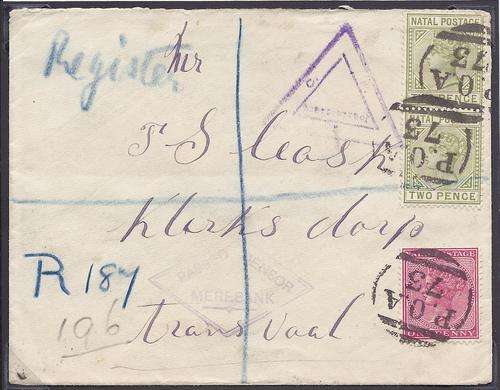 Register
Mr
NATAL POSTAGE
P.O.A
73
PENCE
C.
NATAL POSTAGE
P.O.A
73
TWO PENCE
T S Cash
Klerks dorp
R 187
CENSOR
MEREBANK
196
Transvaal
POSTAGE
P.O.A
73
ONE PENNY